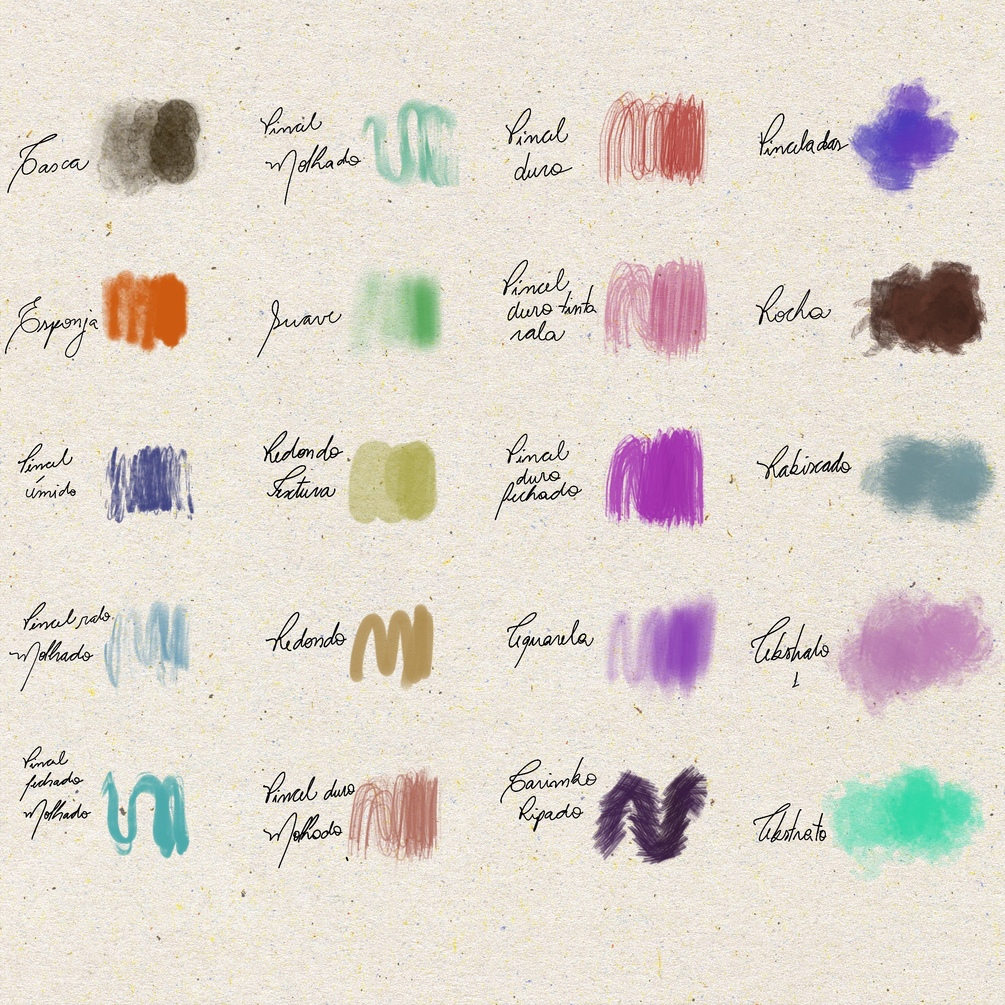 Casca
Pincel
Molhado
Pincel
duro
Pinceladas
Esponja
Suave
Pincel
duro tinta
rala
Rocha
Pincel
úmido
Redondo
Textura
Pincel
duro
fechado
Rabiscado
Pincel ralo
Molhado
Redondo
Aquarela
Abstrato
1
Pincel
fechado
Molhado
Pincel duro
Molhado
Carimbo
Ripado
Abstrato